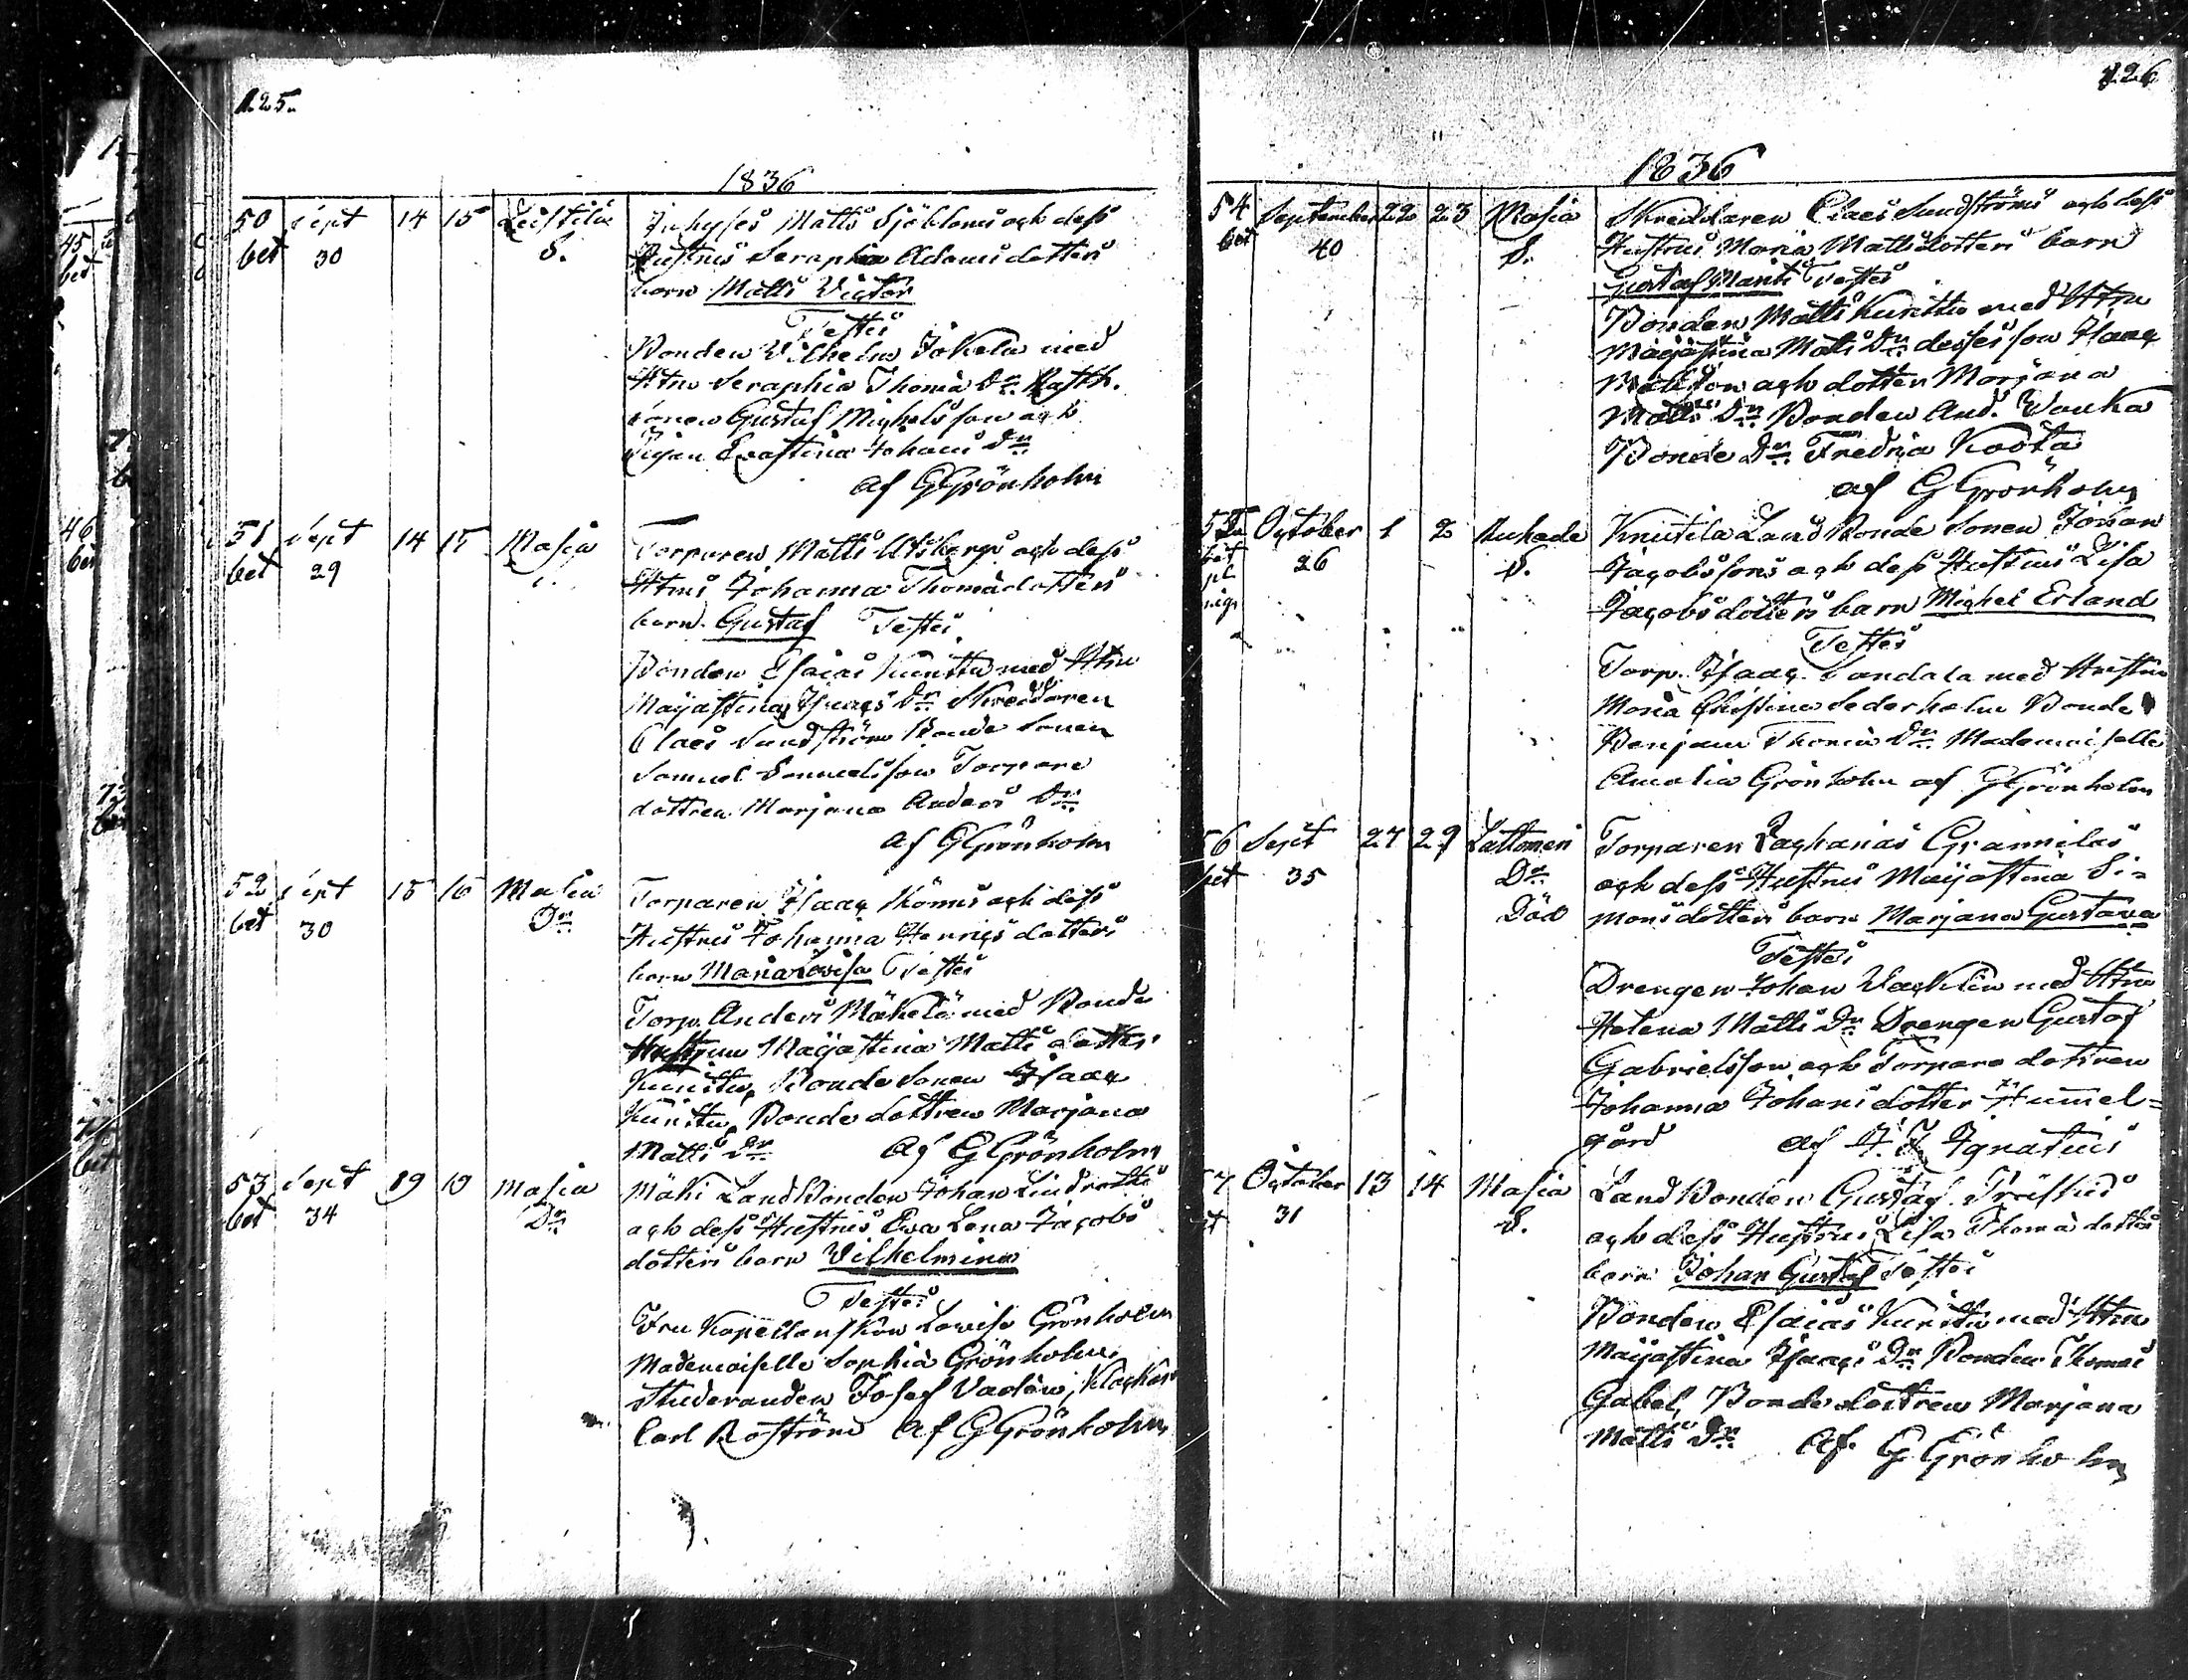 125.
1836
50 sept 14 15 Leistila Inhyses Matts Sjöbloms och dess
bet 30 S. Hustrus Seraphia Adamsdotters
barn Matts Victor
Testes
Bonden Vilhelm Jokela med
Htru Seraphia Thomas Dr
Gustaf Michelsson och
Pigan Evastina Johans Dr
af G Grönholm
51 sept 14 15 Masia Torparen Matts och dess
bet 29 Htrus Johanna Thomasdotters
barn Gustaf Testes
Bonden Esaias Kunittu med Htru
Maijastina Isaacs Dr Skreddaren
Claes Sundström Bonde Sonen
Samuel Samuelsson Torpare
dottren Marjana Anders Dr
af G Grönholm
52 sept 15 16 Masia Torparen Isaac och dess
bet 30 Dr Hustrus Johanna Henricsdotters
barn Maria Lovisa Testes
Torp. Anders Mäkelä med Bonde
Hustrun Maijastina Matts dotter
Kunittu, Bonde Sonen Isaac
Kunittu, Bonde dottren Marjana
Matts Dr af G Grönholm
53 Sept 19 19 Masia Mäki Land Bonden Johan
bet 34 Dr och dess Hustrus Eva Lena Jacobs
dotters barn Vilhelmina
Testes
Fru Kapellanskan Lovisa Grönholm
Mademoiselle Sophia Grönholm
Studeranden Josef Vadén, Klockar
Carl Boström af G Grönholm
126
1836
54 September 22 23 Masia Skreddaren Claes Sundströms och dess
bet 40 S. Hustrus Maria Mattsdotters barn
Gustaf Testes
Bonden Matts Kunittu med Htru
Maijastina Matts Dr desses son Isaac
Mattsson och dotter Marjana
Matts Dr Bonden And. Vouka
Bonde Dr Fredrica
af G Grönholm
55 October 1 2 Knutila Land Bonde Sonen Johan
bet 26 S. Jacobssons och dess Hustrus Lisa
Jacobsdotters barn Michel Erland
Testes
Torp. Isaac Sandala med Hustru
Maria Christina Sederholm Bonde
Benjam Thomas Dr Mademoiselle
Amalia Grönholm af G Grönholm
56 Sept 27 29 Lattomeri Torparen Zachanas Grannilas
bet 35 Dr och dess Hustrus Maijastina Si=
Död monsdotters barn Marjana Gustava
Testes
Drengen Johan Vacklin med Htru
Helena Matts Dr Drengen Gustaf
Gabrielsson och Torpare dottren
Johanna Johansdotter Hummel=
gård af Ignatius
7 October 13 14 Masia Land Bonden Gustaf
31 S. och dess Hustrus Lisa Thomas dotters
barn Johan Gustaf Testes
Bonden Esaias Kunittu med Htru
Maijastina Isaacs Dr Bonden Thomas
Gabel, Bonde dottren Marjana
Matts Dr Af. G Grönholm